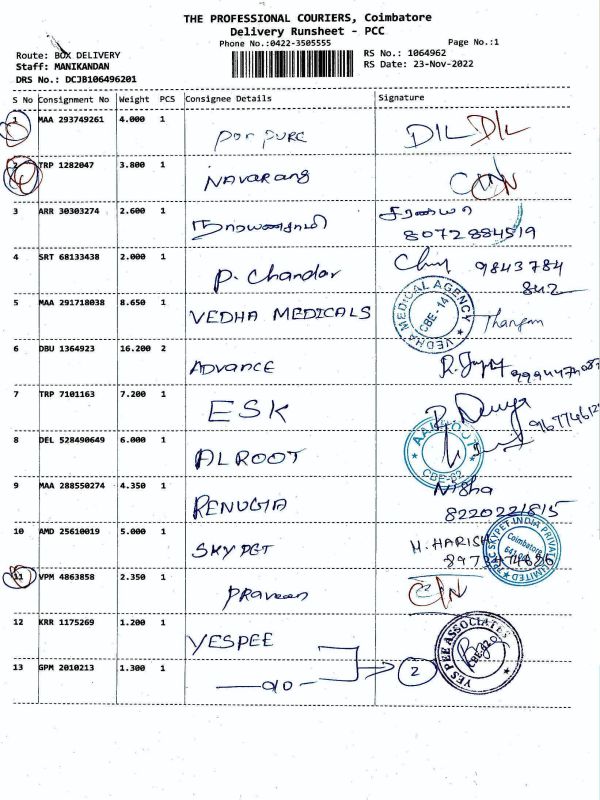 THE PROFESSIONAL COURIERS, Coimbatore
Delivery Runsheet - PCC
Phone No.:0422-3505555
Page No.:1
Route: BOX DELIVERY
RS No.: 1064962
Staff: MANIKANDAN
RS Date: 23-Nov-2022
DRS No.: DCJB106496201
S No Consignment No Weight PCS Consignee Details Signature
1 MAA 293749261 4.000 1 PURE DIL D/L
2 TRP 1282047 3.800 1 NAVARANG
3 ARR 30303274 2.600 1 8072884519
4 SRT 68133438 2.000 1 P. Chandar 9843784
842
5 MAA 291718038 8.650 1 VEDHA MEDICALS VEDHA MEDICAL AGENCY CBE-14 Thangam
6 DBU 1364923 16.200 2 ADVANCE
7 TRP 7101163 7.200 1 ESK
8 DEL 528490649 6.000 1 ALROOT
9 MAA 288550274 4.350 1 RENUGA Nisha
8220221815
10 AMD 25610019 5.000 1 SKYPET H. HARISH Coimbatore
11 VPM 4863858 2.350 1 Praveen
12 KRR 1175269 1.200 1 YESPEE YES PEE ASSOCIATES
13 GPM 2010213 1.300 1 2